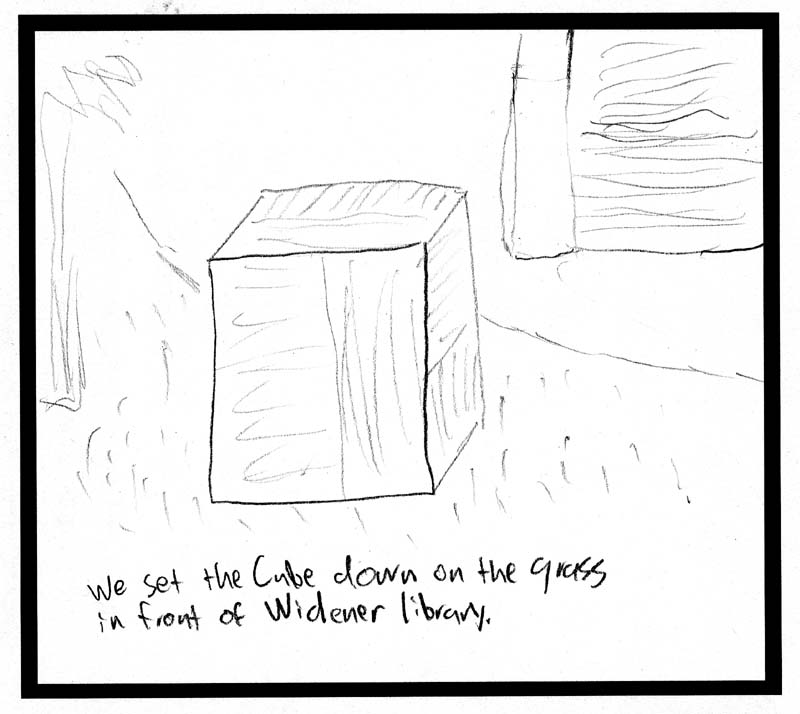 We set the Cube down on the grass
in front of Widener library.